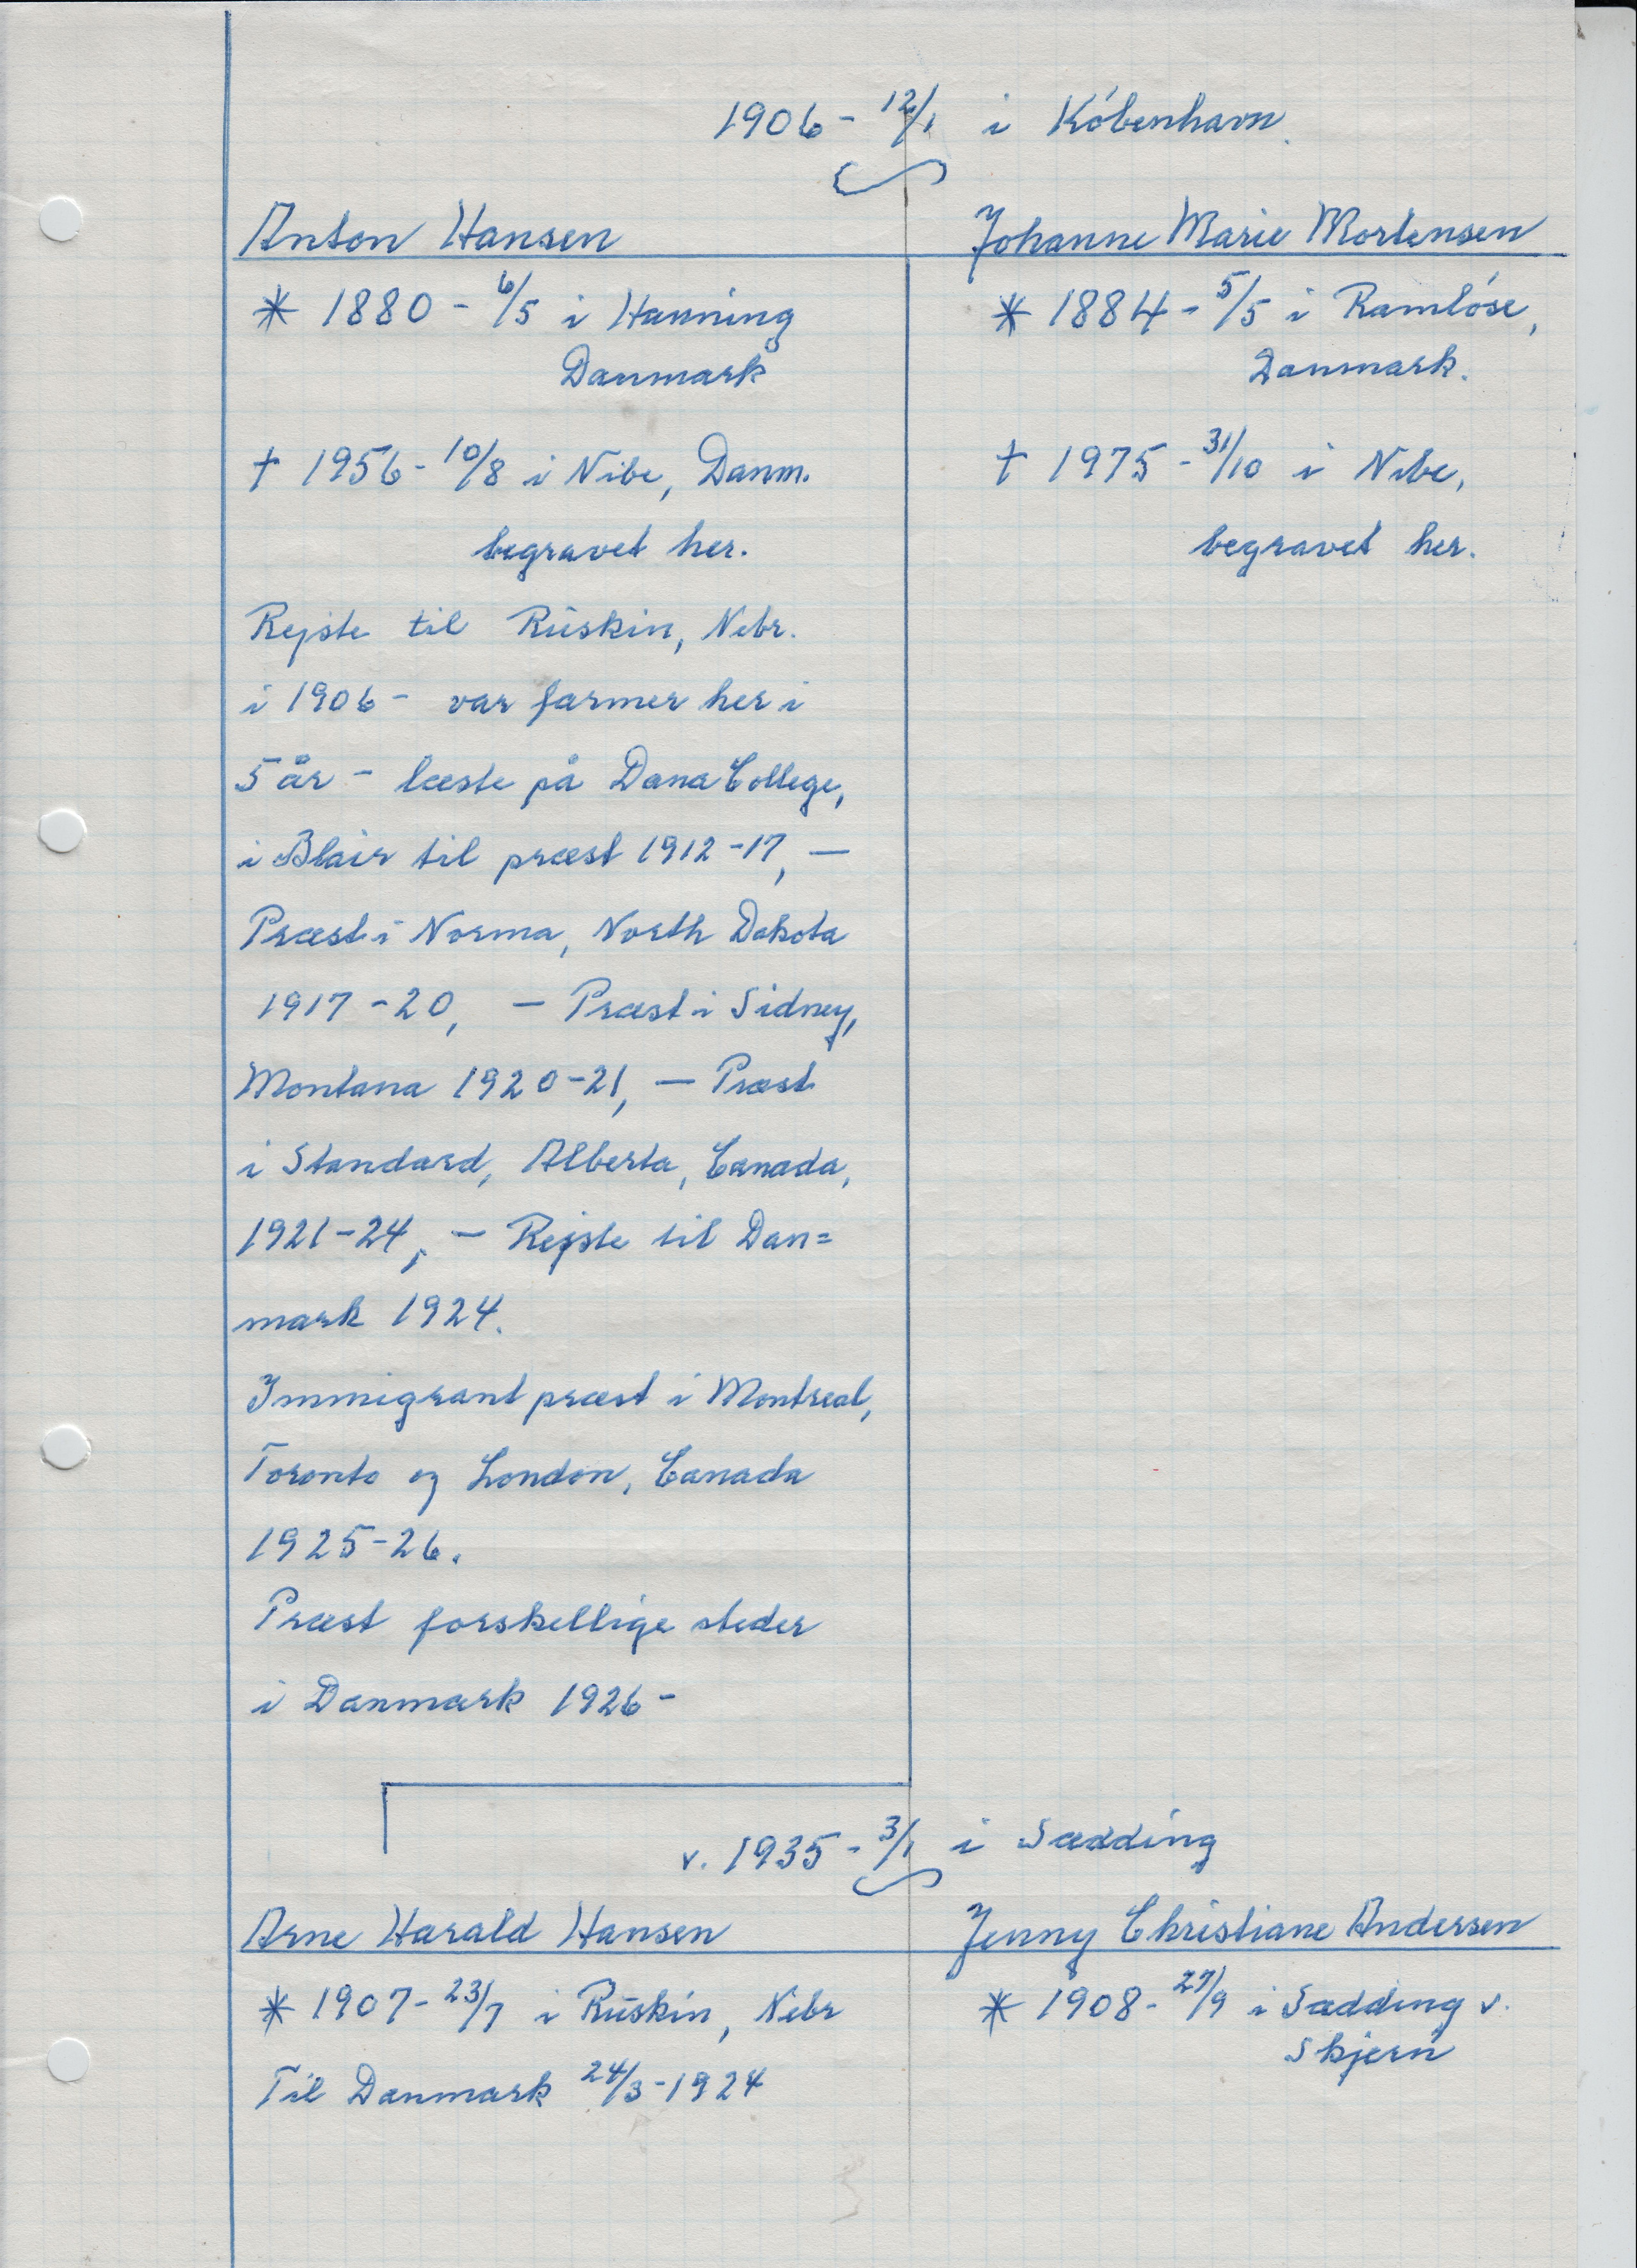 1906 - 12/1 i København.
Anton Hansen
* 1880 - 6/5 i Hanning
Danmark
† 1956 - 10/8 i Nibe, Danm.
begravet her.
Rejste til Ruskin, Nebr.
i 1906 - var farmer her i
5 år - læste på Dana College,
i Blair til præst 1912-17, —
Præst i Norma, North Dakota
1917-20, — Præst i Sidney,
Montana 1920-21, — Præst
i Standard, Alberta, Canada,
1921-24, — Rejste til Dan=
mark 1924.
Immigrant præst i Montreal,
Toronto og London, Canada
1925-26.
Præst forskellige steder
i Danmark 1926 -
Johanne Marie Mortensen
* 1884 - 5/5 i Ramløse,
Danmark.
† 1975 - 31/10 i Nibe,
begravet her.
v. 1935 - 3/1 i Sædding
Arne Harald Hansen
* 1907 - 23/7 i Ruskin, Nebr
Til Danmark 24/3-1924
Jenny Christiane Andersen
* 1908 - 27/9 i Sædding v.
Skjern